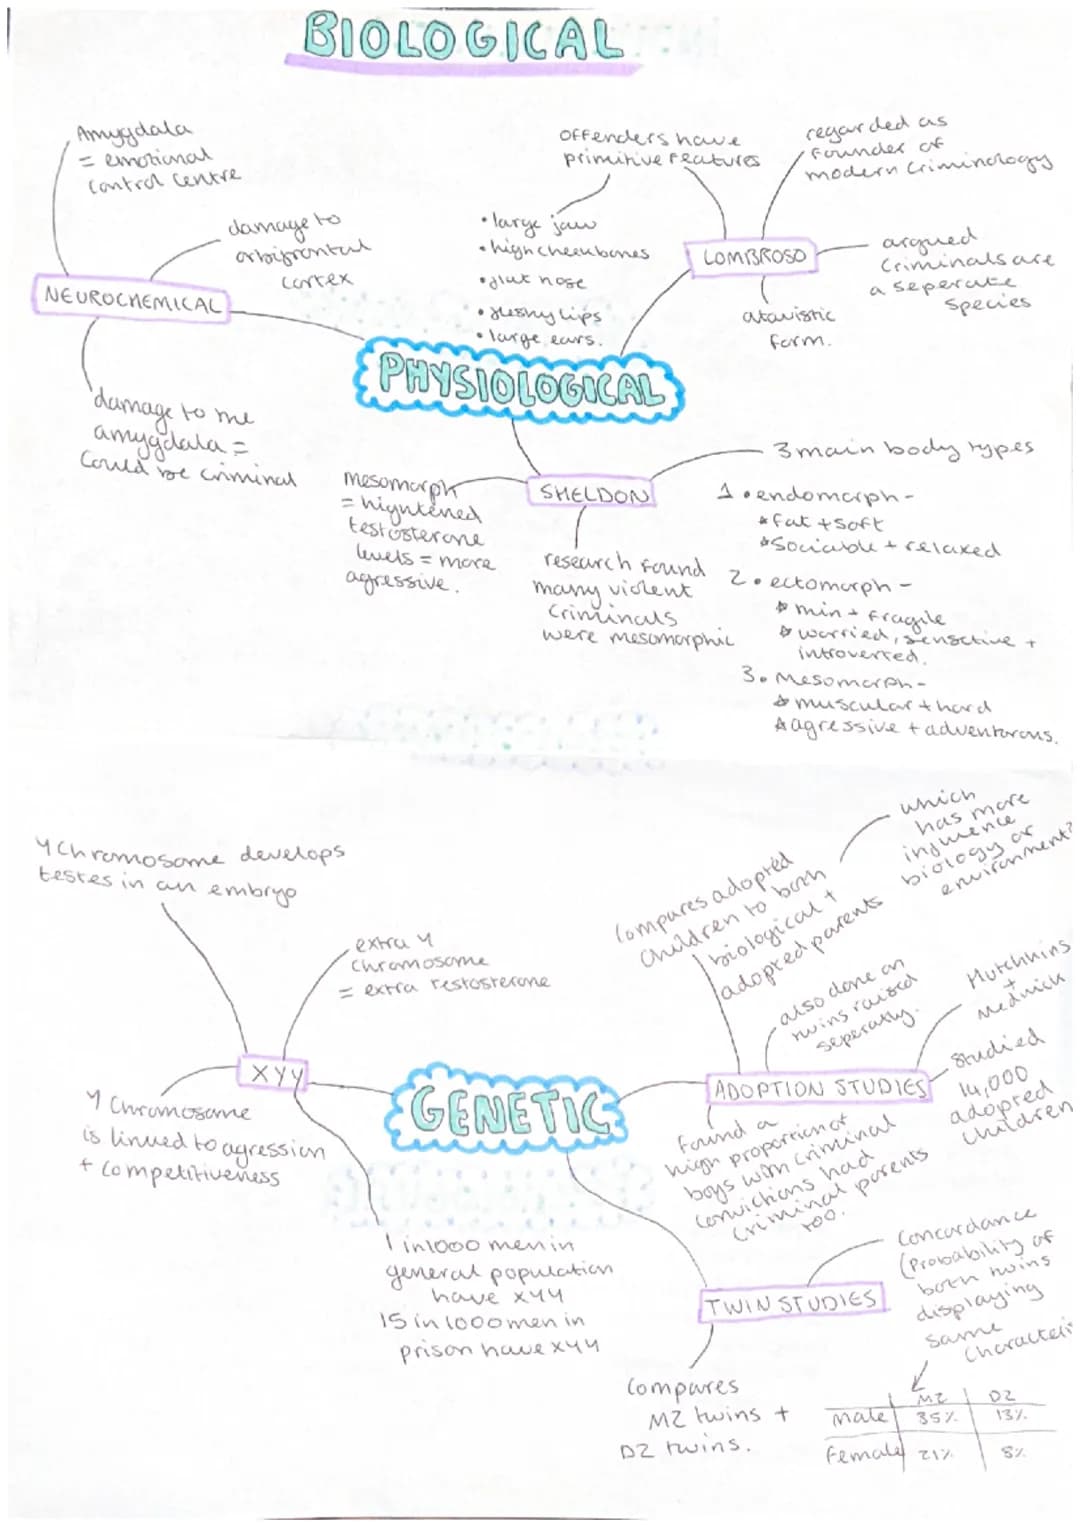 BIOLOGICAL
Amygdala
= emotional
control centre
damage to
orbifrontal
cortex
NEUROCHEMICAL
damage to the
amygdala =
could be criminal
offenders have
primitive features
• large jaw
• high cheekbones
• flat nose
• fleshy lips
• large ears.
regarded as
founder of
modern criminology
LOMBROSO
argued
criminals are
a seperate
species
atavistic
form.
PHYSIOLOGICAL
SHELDON
Mesomorph
= hightened
testosterone
levels = more
agressive.
research found
many violent
criminals
were mesomorphic
3 main body types
1 • endomorph -
* fat + soft
* sociable + relaxed
2 • ectomorph -
* thin + fragile
* worried, sensetive +
introverted.
3 • Mesomorph -
* muscular + hard
* agressive + adventorous.
Y chromosome develops
testes in an embryo
extra Y
chromosome
= extra testosterone
XYY
Y chromosome
is linked to agression
+ competitiveness
1 in 1000 men in
general population
have XYY
15 in 1000 men in
prison have XYY
GENETIC
Compares adopted
children to both
biological +
adopted parents
which
has more
influence
biology or
environment?
also done on
twins raised
seperatly.
Hutchkins
+
Mednick
ADOPTION STUDIES
studied
14,000
adopted
children
found a
high proportion of
boys with criminal
convictions had
criminal parents
too.
TWIN STUDIES
Concordance
(Probability of
both twins
displaying
same
Compares
MZ twins +
DZ twins.
MZ DZ
Male 35% 13%
Female 21% 8%